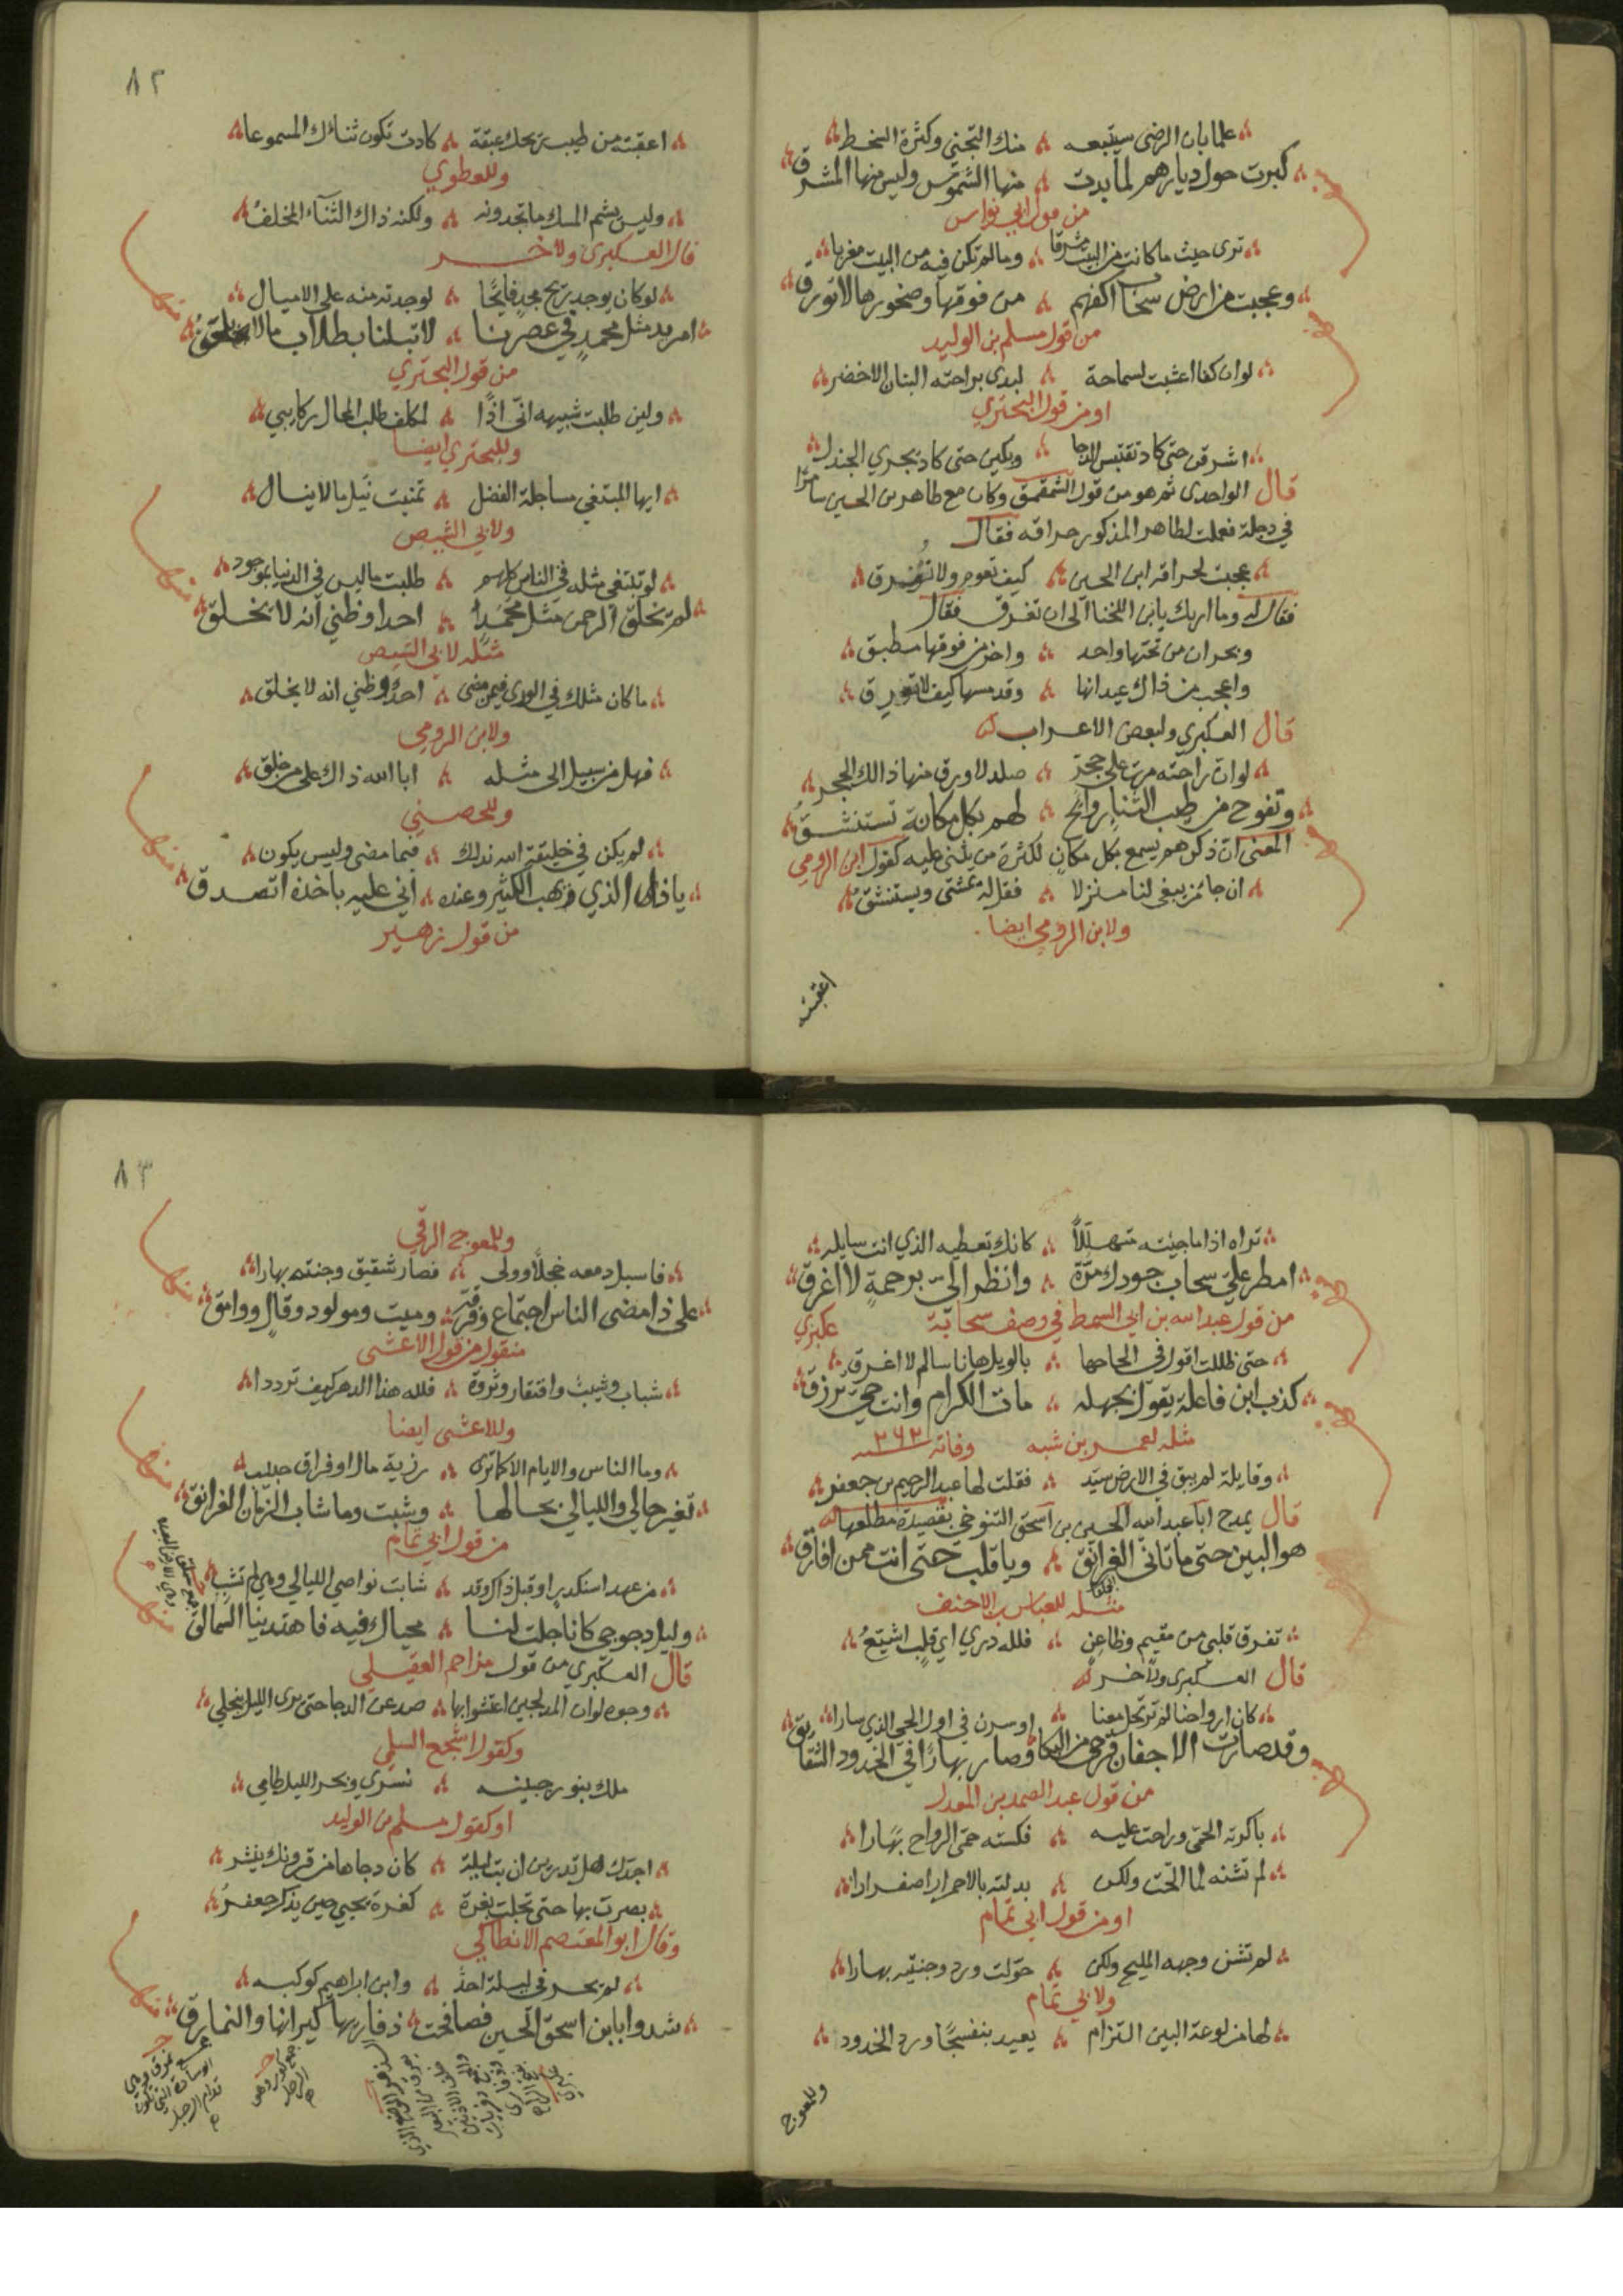 علما بان الرضى سيتبعه ۞ منك التجني وكثرة السخط
كبرت حول ديارهم لما بدت ۞ منها الشموس وليس منها المشرق
من قول ابي نواس
ترى حيث ما كانت من البيت مشرقا ۞ وما لم تكن فيه من البيت مغربا
وعجبت من ارض سحاب اكفهم ۞ من فوقها وصخورها لا تورق
من قول مسلم بن الوليد
لو ان كفا اعشبت لسماحة ۞ لبدى براحته النبات الاخضر
او من قول البحتري
اشرقن حتى كاد تقتبس الدجا ۞ وبكين حتى كاد يجري الجندل
قال الواحدى ثم هو من قول الشمقمق وكان مع طاهر بن الحسين سامرا
في دجلة فعملت لطاهر المذكور حراقه فقال
عجبت لحراقة ابن الحسين ۞ كيف تعوم ولا تغرق
فقال له وما اربك يا ابن اللخنا الى ان تغرق فقال
وبحران من تحتها واحد ۞ واخر من فوقها مطبق
واعجب من ذاك عيدانها ۞ وقد مسها كيف لا تورق
قال العكبري ولبعض الاعراب
لو ان راحته مرت على حجر ۞ صلد لاورق منها ذالك الحجر
وتفوح من طيب الثناء روائح ۞ لهم بكل مكانة تستنشق
المعنى ان ذكرهم يسمع بكل مكان لكثرة من يثنى عليه كقول ابن الرومي
ان جا من يبغى لنا منزلا ۞ فقل له يمشى ويستنشق
ولابن الرومي ايضا
اعقبته
٨٢
اعقبته من طيب ريحك عبقة ۞ كادت تكون ثناءك المسموعا
وللعطوي
وليس بشم المسك ما تجدونه ۞ ولكنه ذاك الثناء المخلف
قال العكبرى ولاخر
لو كان يوجد ريح مجد فايحا ۞ لوجدته منه على الاميال
امريد مثل محمد في عصرنا ۞ لا تبلنا بطلاب ما لا يلحق
من قول البحتري
ولين طلبت شبيهه اني اذا ۞ لمكلف طلب المحال ركابي
وللبحتري ايضا
ايها المبتغي مساجلة الفضل ۞ تمنيت نيل ما لا ينال
ولابي الشيص
لو تبتغي مثله في الناس كلهم ۞ طلبت ما ليس في الدنيا بموجود
لم يخلق الرحمن مثل محمد ۞ احدا وظني انه لا يخلق
مثله لابي الشيص
ما كان مثلك في الورى فيمن مضى ۞ احد وظني انه لا يخلق
ولابن الرومي
فهل من سبيل الى مثله ۞ ابا الله ذاك على من خلق
وللحصني
لم يكن في خليقة الله ندلك ۞ فيما مضى وليس يكون
يا ذا الذي وهب الكثير وعنده ۞ اني عليه باخذه اتصدق
من قول زهير
تراه اذا ما جيته متهللا ۞ كانك تعطيه الذي انت سايله
امطر علي سحاب جودك مرة ۞ وانظر الي برحمة لا اغرق
من قول عبد الله بن ابي السمط في وصف سحابة عكبري
حتى ظللت اقول في الحاحها ۞ بالويل ها انا سالم لا اغرق
كذب ابن فاعلة يقول بجهله ۞ مات الكرام وانت حي ترزق
مثله لعمر بن شبه وفاته ٢٦٢
وقايلة لم يبق في الارض سيد ۞ فقلت لها عبد الرحيم بن جعفر
قال يمدح ابا عبد الله الحسين بن اسحق التنوخي بقصيدة مطلعها
هو البين حتى ما تانى الغرانق ۞ ويا قلب حتى انت ممن افارق
مثله للعباس بن الاحنف
تفرق قلبي من مقيم وظاعن ۞ فلله دري اي قلب اشيع
قال العكبرى ولاخر
كان ارواحنا لم ترتحل معنا ۞ او سرن في اول الحي الذي سارا
وقد صارت الاجفان قرحى من البكا وصار بهارا في الخدود الشقايق
من قول عبد الصمد بن المعدل
باكرته الحمى وراحت عليه ۞ فكسته حمى الرواح بهارا
لم تشنه لما الحت ولكن ۞ بدلته بالاحمرار اصفرارا
او من قول ابي تمام
لم تشن وجهه المليح ولكن ۞ حولت ورد وجنتيه بهارا
ولابي تمام
لها من لوعة البين التزام ۞ يعيد بنفسجا ورد الخدود
وللمعوج
٨٣
وللمعوج الرقي
فاسبل دمعه خجلا وولى ۞ فصار شقيق وجنته بهارا
على ذا مضى الناس اجتماع وفرقة ۞ وميت ومولود وقال ووامق
منقول من قول الاعشى
شباب وشيب وافتقار وثروة ۞ فلله هذا الدهر كيف ترددا
وللاعشى ايضا
وما الناس والايام الا كما ترى ۞ رزية مال او فراق حبيب
تغير حالي والليالي بحالها ۞ وشبت وما شاب الزمان الغرانق
من قول ابي تمام
من عهد اسكندر او قبل ذاك وقد ۞ شابت نواصي الليالي وهي لم تشب
وليل دجوجي كانا جلت لنا ۞ محياك فيه فاهتدينا السمالق
قال العكبري من قول مزاحم العقيلي
وجوه لو ان المدلجين اعتشوا بها ۞ صدعن الدجا حتى يرى الليل ينجلي
وكقول اشجع السلمي
ملك بنور جبينه ۞ نسري وبحر الليل طامي
او كقول مسلم بن الوليد
اجدك هل تدرين ان بت ليلة ۞ كان دجاها من قرونك ينشر
بصرت بها حتى تجلت بغرة ۞ كغرة يحيي حين يذكر جعفر
وقال ابو المعتصم الانطاكي
لم يحر في ليلة احد ۞ وابن ابراهيم كوكبه
شدوا بابن اسحق الحسين فصافحت ۞ ذفاريها كيرانها والنمارق